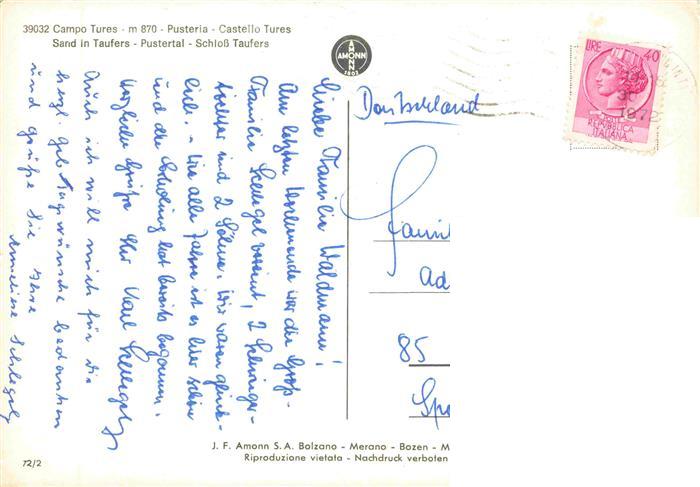 39032 Campo Tures - m 870 - Pusteria - Castello Tures
Sand in Taufers - Pustertal - Schloß Taufers
AMONN
AMONN
1802
LIRE 40
POSTE
REPVBBLICA
ITALIANA
1972
Deutschland
Famil
Ad
85
Liebe Familie Waldmann!
Am letzten Wochenende war die Groß-
Familie Schlegel vereint, 2 Schwieger-
töchter und 2 Söhne. Wir waren glück-
lich. Wie alle Jahre ist es hier schön
und die Erholung hat bereits begonnen.
Herzliche Grüße Ihr Karl Schlegel
Auch ich will mich für die
herzl. Geburtstagswünsche bedanken
und grüße Sie Ihre
Anneliese Schlegel
J. F. Amonn S.A. Bolzano - Merano - Bozen - M
Riproduzione vietata - Nachdruck verboten
72/2